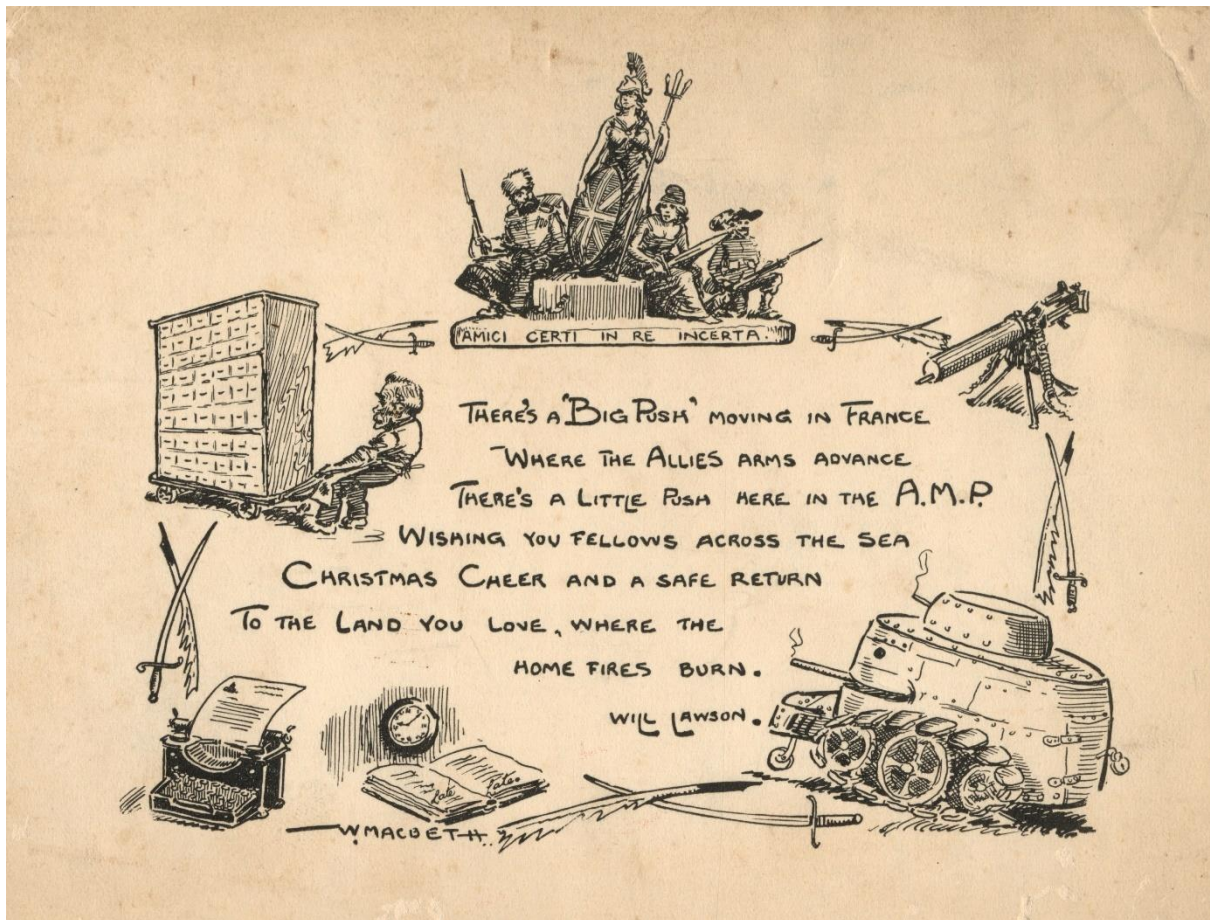 AMICI CERTI IN RE INCERTA.
THERE'S A "BIG PUSH" MOVING IN FRANCE
WHERE THE ALLIES ARMS ADVANCE
THERE'S A LITTLE PUSH HERE IN THE A.M.P.
WISHING YOU FELLOWS ACROSS THE SEA
CHRISTMAS CHEER AND A SAFE RETURN
TO THE LAND YOU LOVE, WHERE THE
HOME FIRES BURN.
WILL LAWSON.
late late.
W. MACBETH.